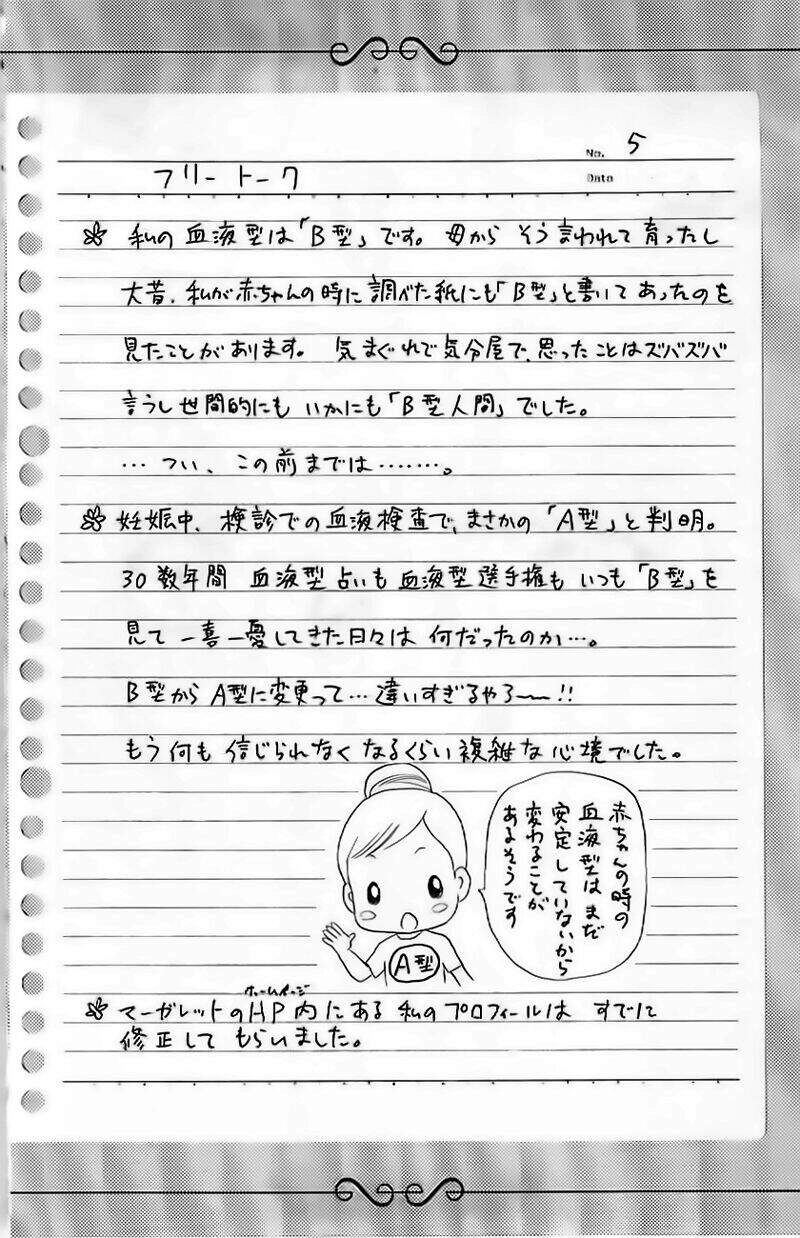 No. 5
Date
フリートーク
私の血液型は「B型」です。母からそう言われて育ったし
大昔、私が赤ちゃんの時に調べた紙にも「B型」と書いてあったのを
見たことがあります。気まぐれで気分屋で、思ったことはズバズバ
言うし世間的にもいかにも「B型人間」でした。
…つい、この前までは……。
妊娠中、検診での血液検査で、まさかの「A型」と判明。
30数年間 血液型占いも血液型選手権もいつも「B型」を
見て一喜一憂してきた日々は何だったのか…。
B型からA型に変更って…違いすぎるやろ〜〜!!
もう何も信じられなくなるくらい複雑な心境でした。
赤ちゃんの時の
血液型はまだ
安定していないから
変わることが
あるそうです
A型
ホームページ
マーガレットのHP内にある私のプロフィールはすでに
修正してもらいました。